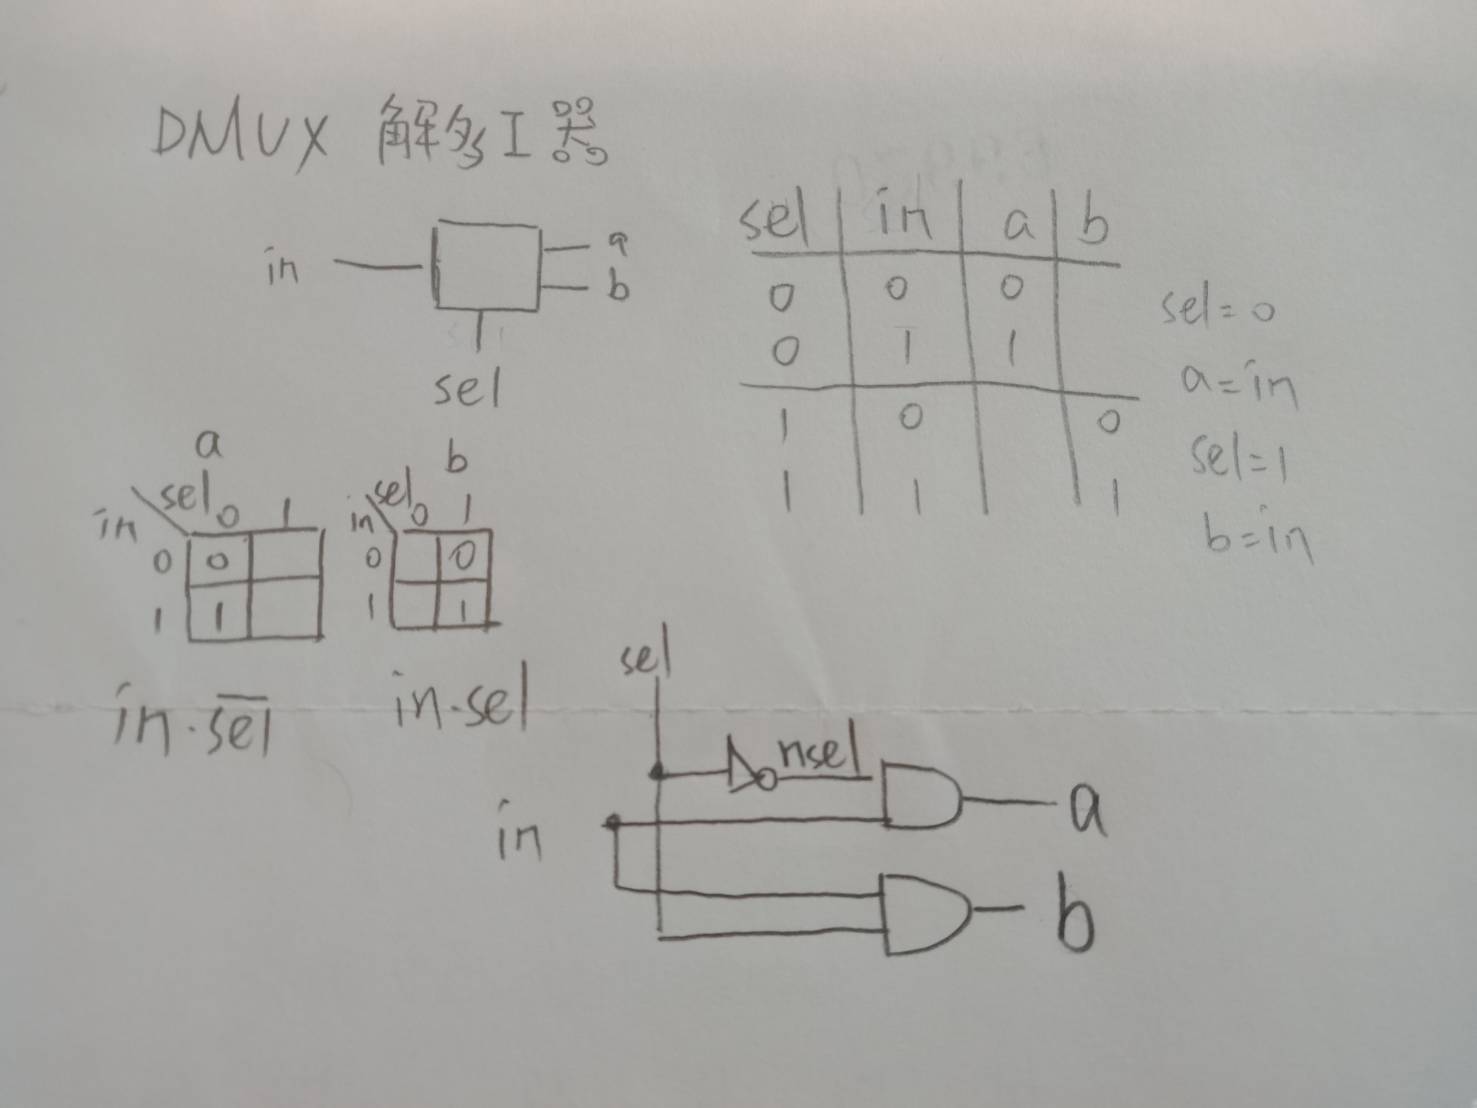 DMUX 解多工器
in
a
b
sel
sel in a b
0 0 0
0 1 1
1 0 0
1 1 1
sel=0
a=in
sel=1
b=in
a
sel 0 1
in
0 0
1 1
in·s̅e̅l̅
b
sel 0 1
in
0 0
1 1
in·sel
sel
nsel
in
a
b